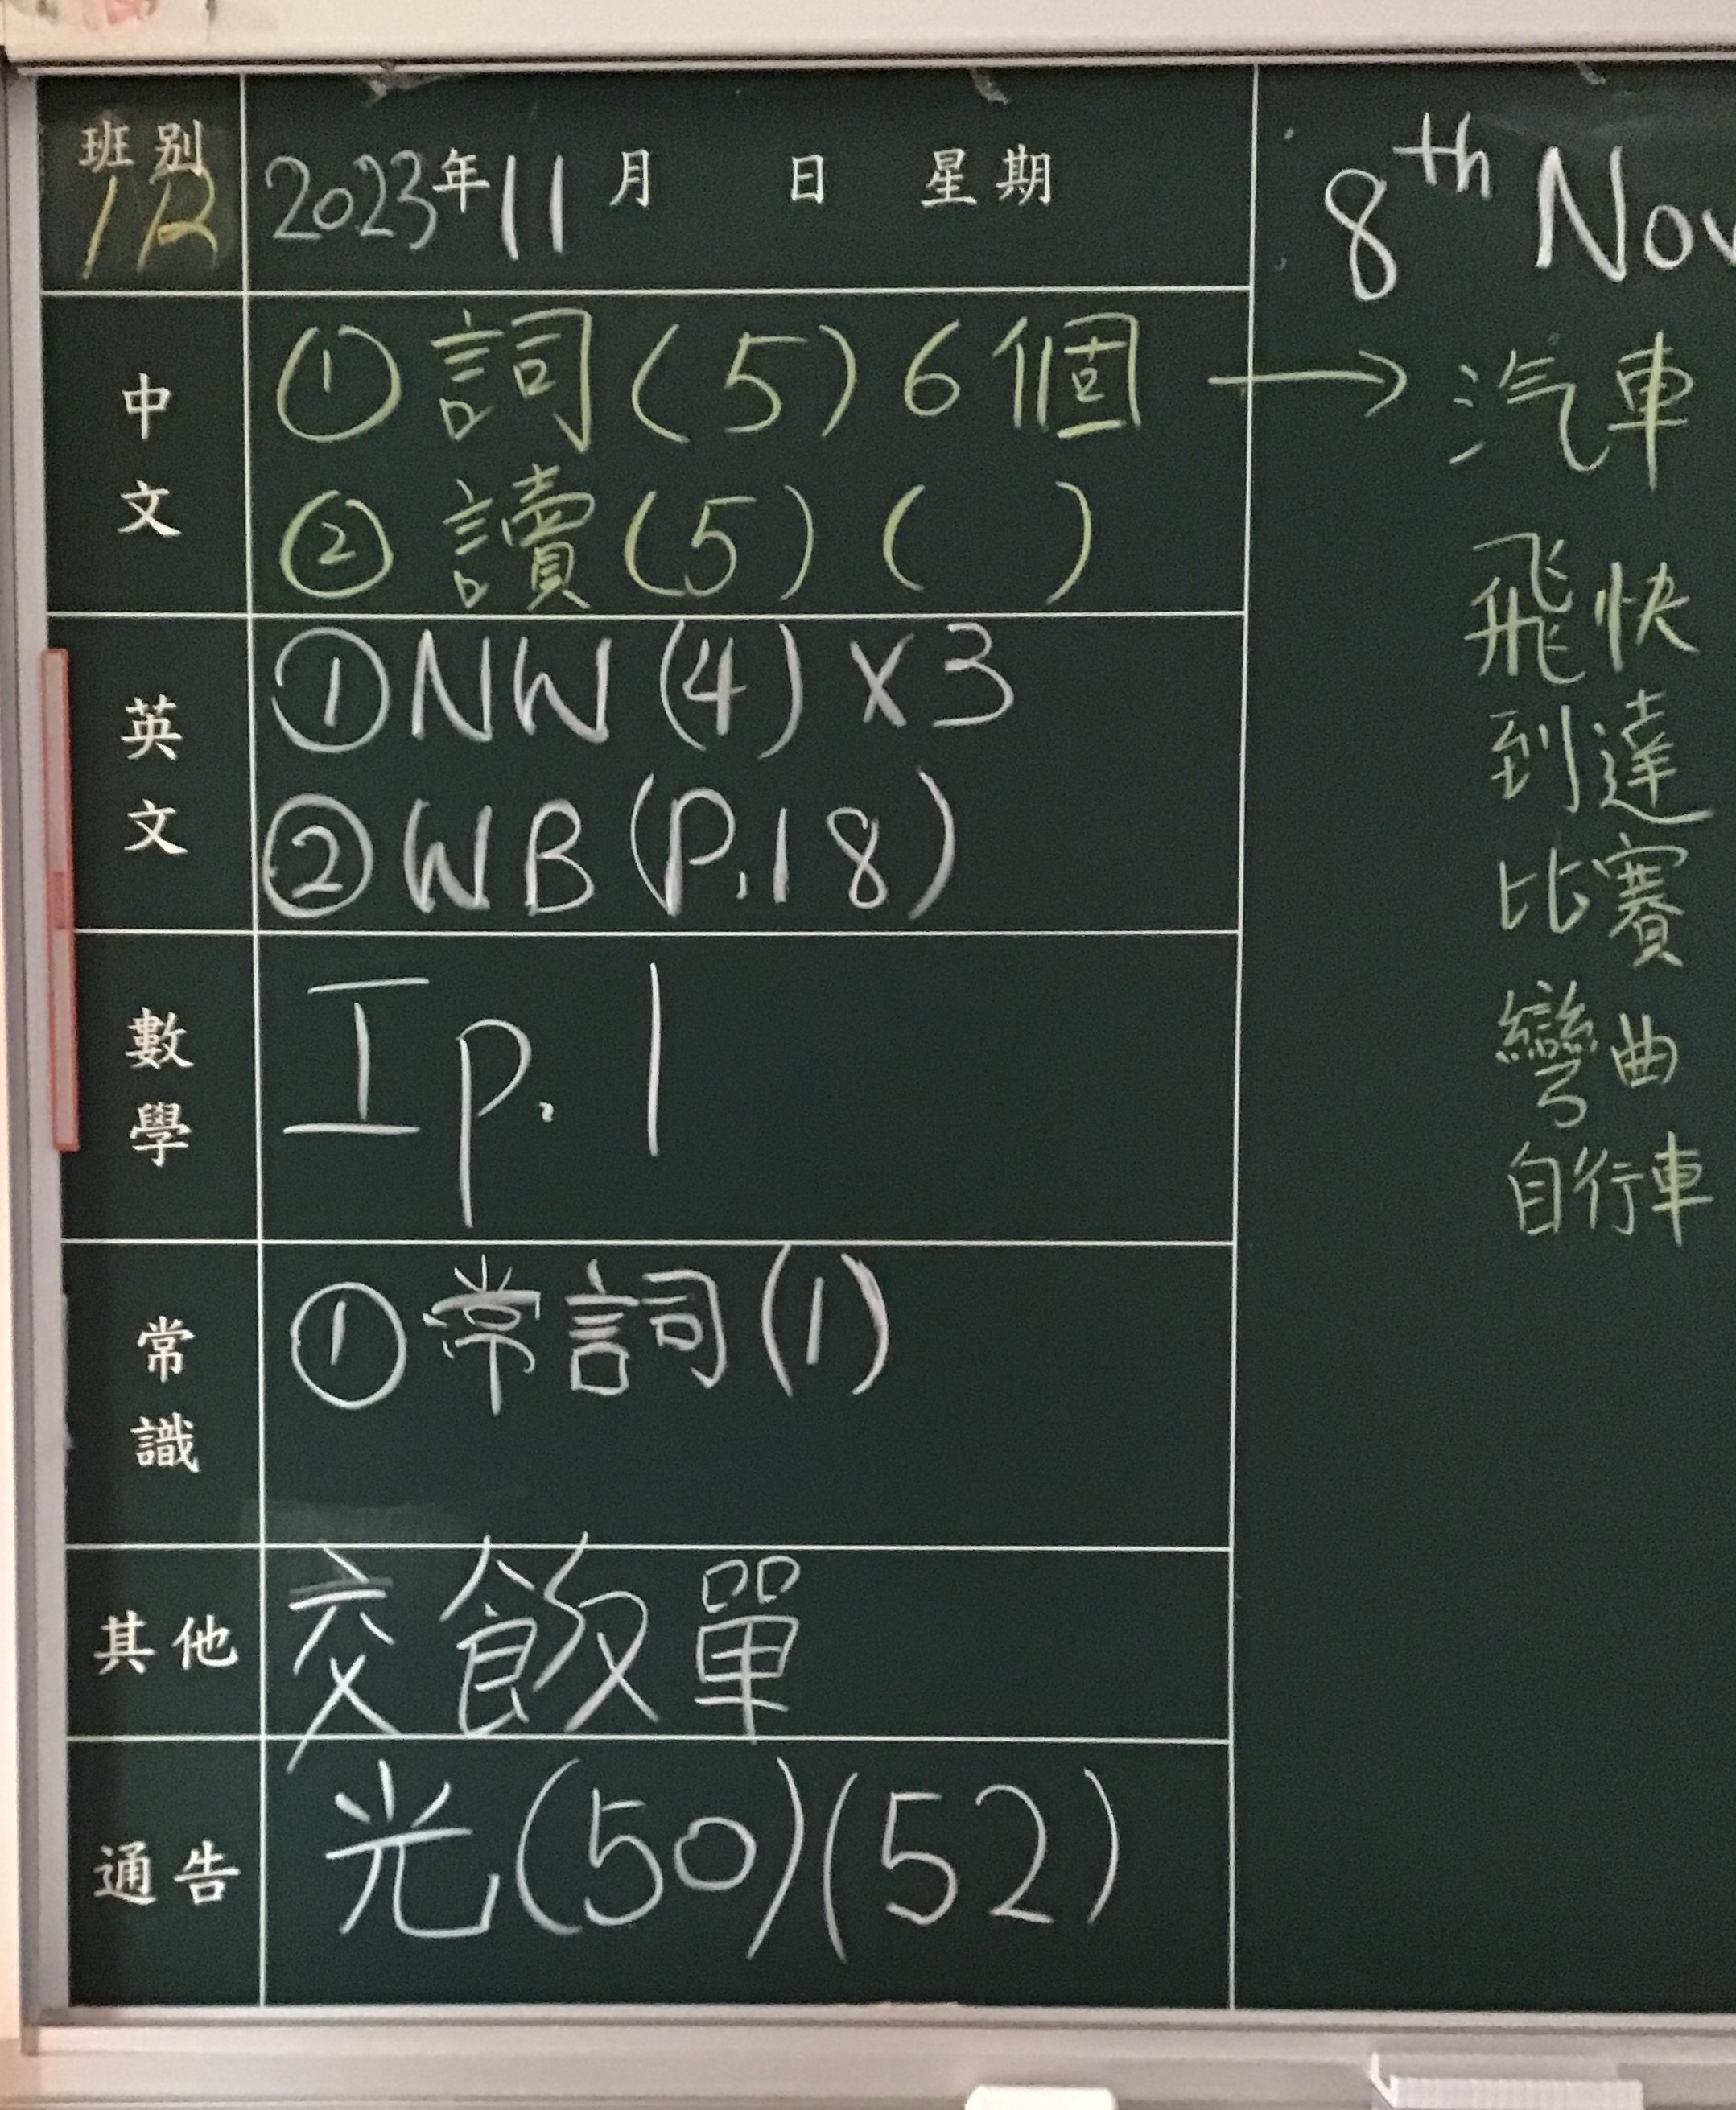 班別 2023年11月 日 星期
1B
8th Nov
中文
①詞(5)6個 →
②讀(5)( )
汽車
飛快
到達
比賽
彎曲
自行車
英文
①NW(4)x3
②WB(P.18)
數學
工p.1
常識
①常詞(1)
其他
交飯單
通告
光(50)(52)